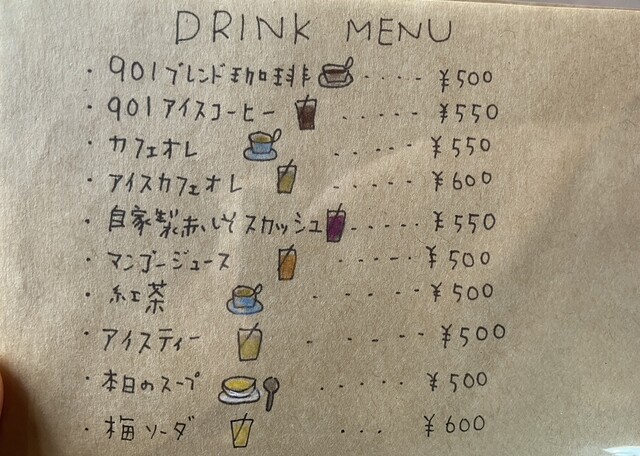 DRINK MENU
・901ブレンド珈琲 ・・・・・ ¥500
・901アイスコーヒー ・・・・・ ¥550
・カフェオレ ・・・・・ ¥550
・アイスカフェオレ ・・・・・ ¥600
・自家製赤しそスカッシュ ・・・・・ ¥550
・マンゴージュース ・・・・・ ¥500
・紅茶 ・・・・・ ¥500
・アイスティー ・・・・・ ¥500
・本日のスープ ・・・・・ ¥500
・梅ソーダ ・・・ ¥600